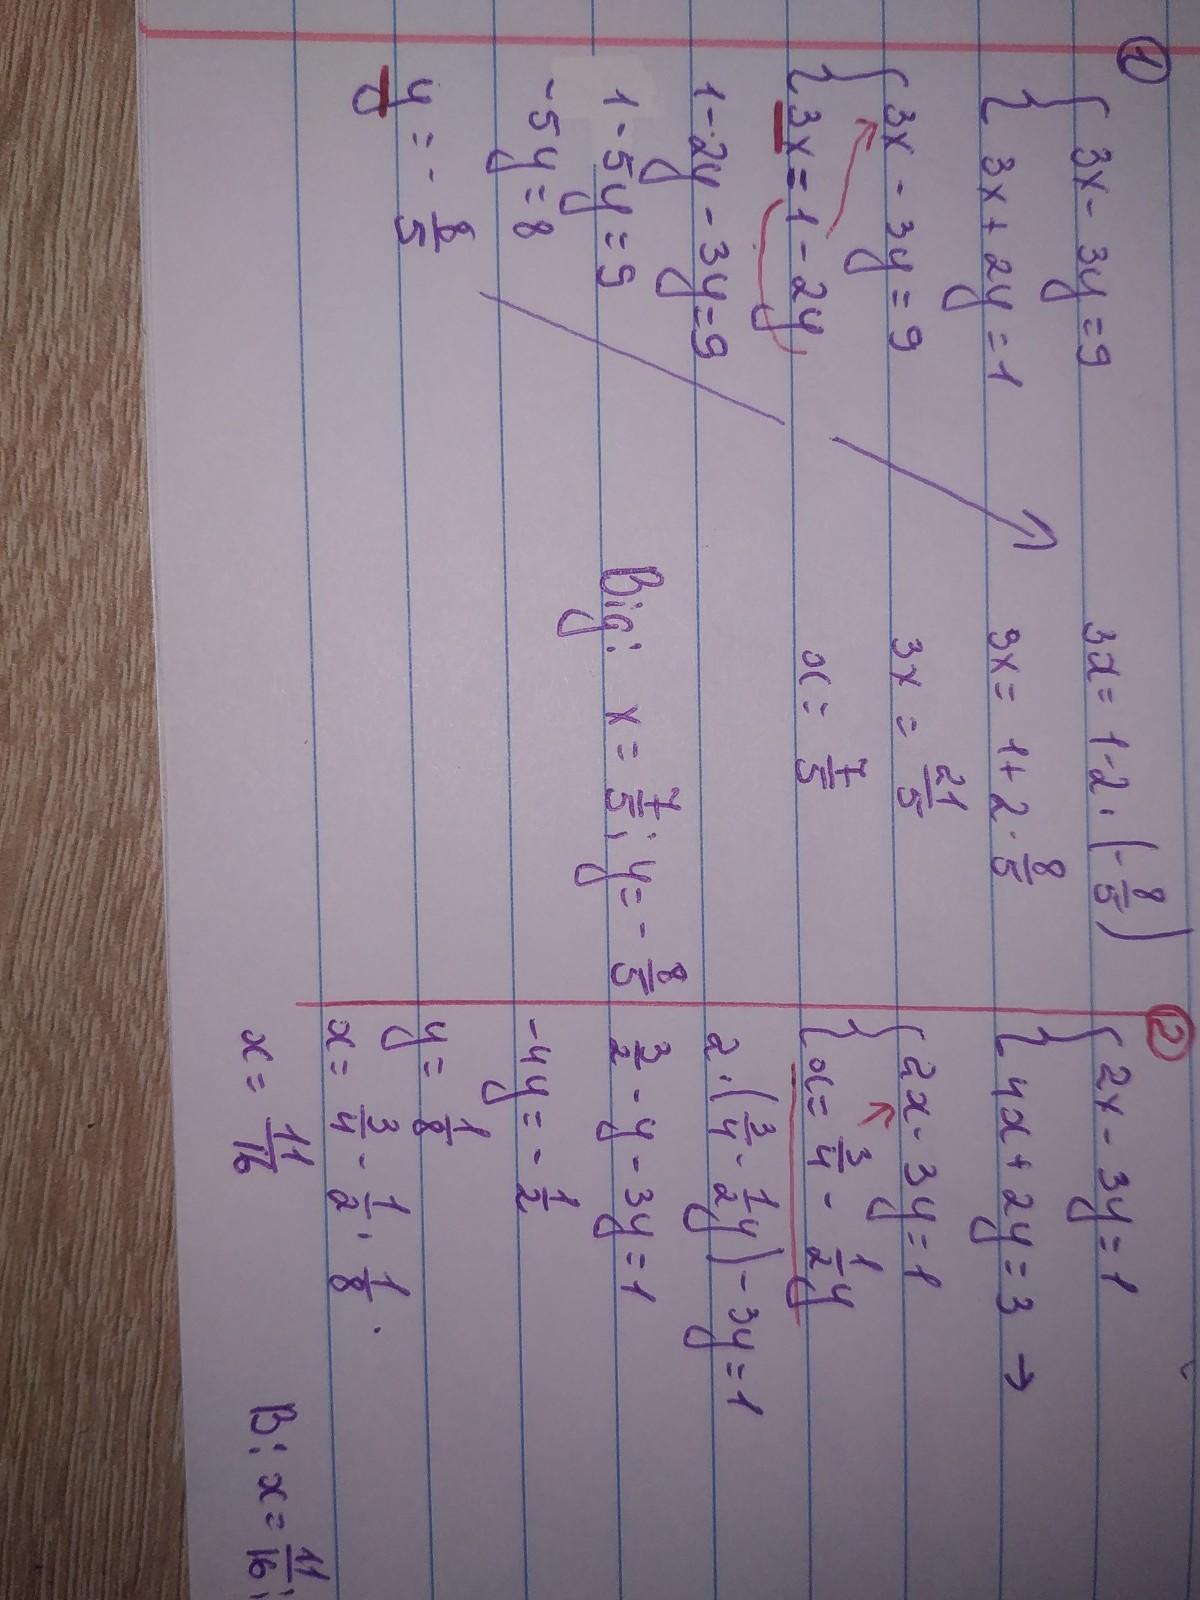 ①
{ 3x - 3y = 9
{ 3x + 2y = 1
{ 3x - 3y = 9
{ 3x = 1 - 2y
1 - 2y - 3y = 9
1 - 5y = 9
-5y = 8
y = - 8/5
3x = 1 - 2 · (- 8/5)
3x = 1 + 2 · 8/5
3x = 21/5
x = 7/5
Від: x = 7/5; y = - 8/5
②
{ 2x - 3y = 1
{ 4x + 2y = 3 →
{ 2x - 3y = 1
{ x = 3/4 - 1/2 y
2 · (3/4 - 1/2 y) - 3y = 1
3/2 - y - 3y = 1
-4y = - 1/2
y = 1/8
x = 3/4 - 1/2 · 1/8 .
x = 11/16
В: x = 11/16;